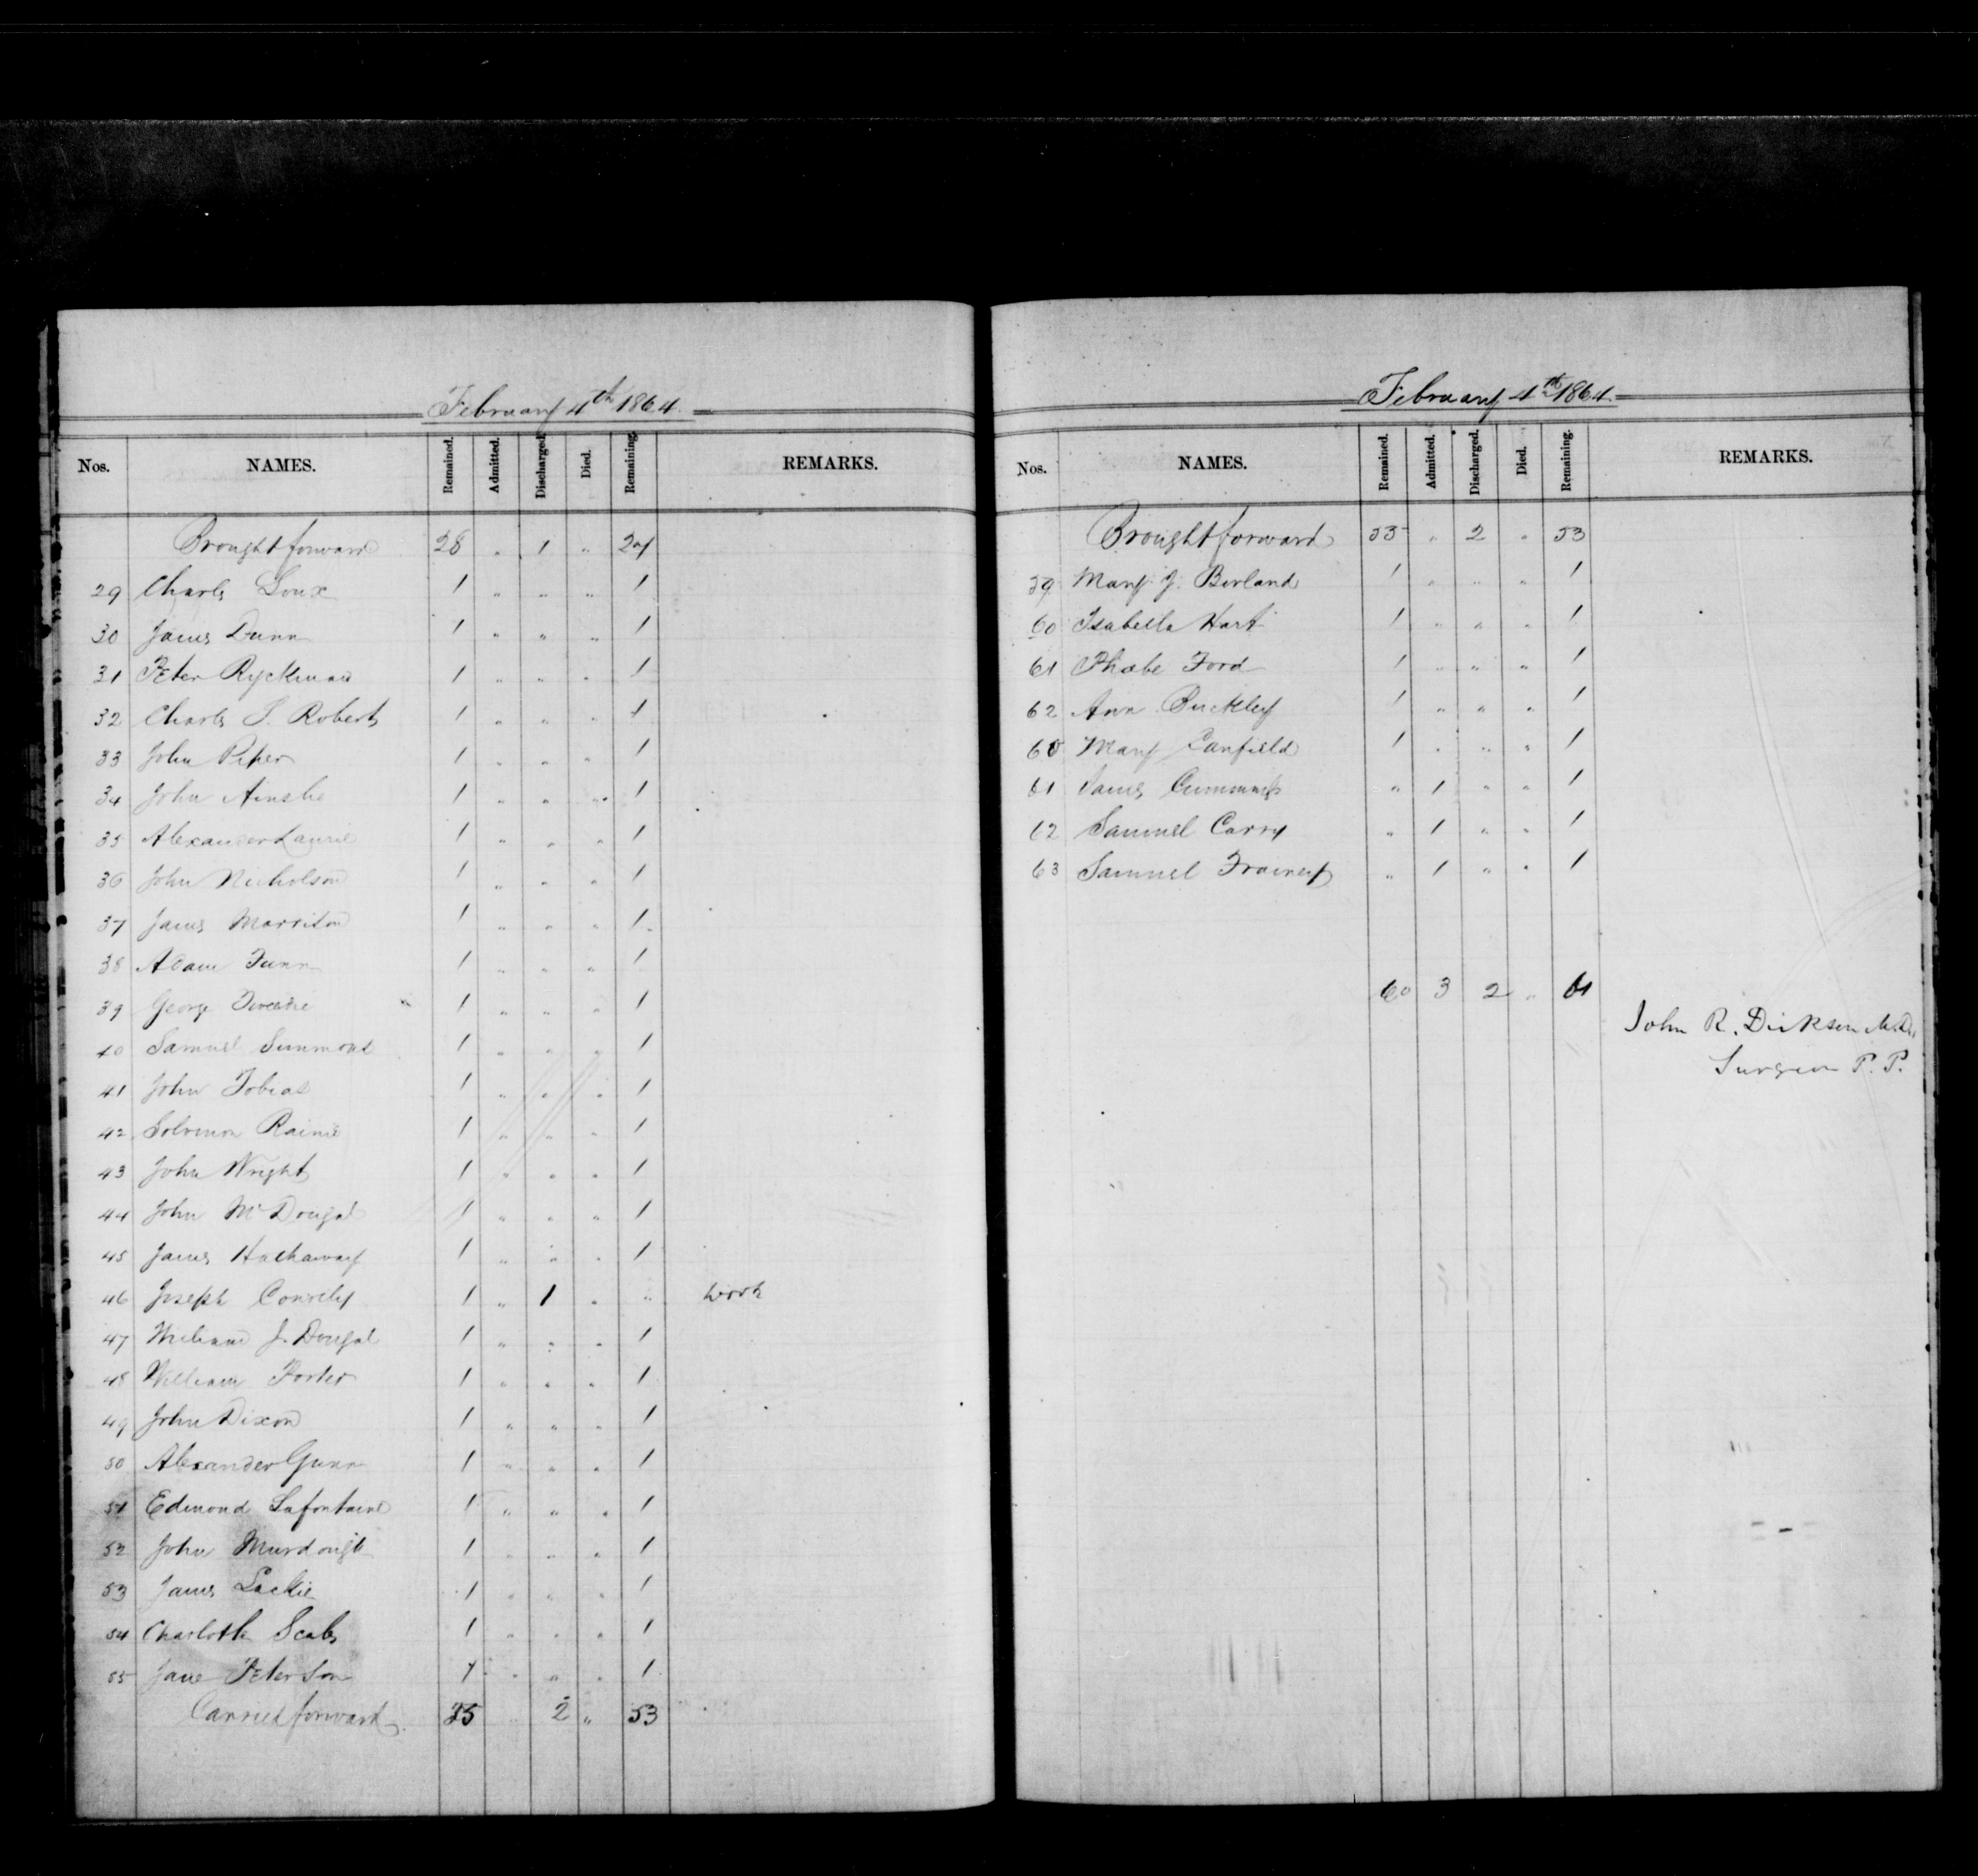 February 4th 1864.
Nos. NAMES. Remained. Admitted. Discharged. Died. Remaining. REMARKS.
Brought forward 28 " 1 " 27
29 Charles Loux 1 " " " 1
30 James Dunn 1 " " " 1
31 Peter Ryckman 1 " " " 1
32 Charles S. Roberts 1 " " " 1
33 John Piper 1 " " " 1
34 John Ainslie 1 " " " 1
35 Alexander Laurie 1 " " " 1
36 John Nicholson 1 " " " 1
37 James Morrison 1 " " " 1
38 Adam Funn 1 " " " 1
39 George Tweedie 1 " " " 1
40 Samuel Simmons 1 " " " 1
41 John Tobias 1 " " " 1
42 Solomon Rainie 1 " " " 1
43 John Wright 1 " " " 1
44 John McDougal 1 " " " 1
45 James Hathaway 1 " " " 1
46 Joseph Connelly 1 " 1 " " Work
47 William J. Dougal 1 " " " 1
48 William Porter 1 " " " 1
49 John Dixon 1 " " " 1
50 Alexander Gunn 1 " " " 1
51 Edmond Lafontaine 1 " " " 1
52 John Murdough 1 " " " 1
53 James Lackie 1 " " " 1
54 Charlotte Scales 1 " " " 1
55 Jane Peterson 1 " " " 1
Carried forward 55 2 " 53
February 4th 1864.
Nos. NAMES. Remained. Admitted. Discharged. Died. Remaining. REMARKS.
Brought forward 55 " 2 " 53
59 Mary J. Borland 1 " " " 1
60 Isabella Hart 1 " " " 1
61 Phoebe Ford 1 " " " 1
62 Ann Buckley 1 " " " 1
60 Mary Canfield 1 " " " 1
61 James Cummings " 1 " " 1
62 Samuel Carry " 1 " " 1
63 Samuel Trainey " 1 " " 1
60 3 2 " 61
John R. Dickson M.D.
Surgeon P. P.